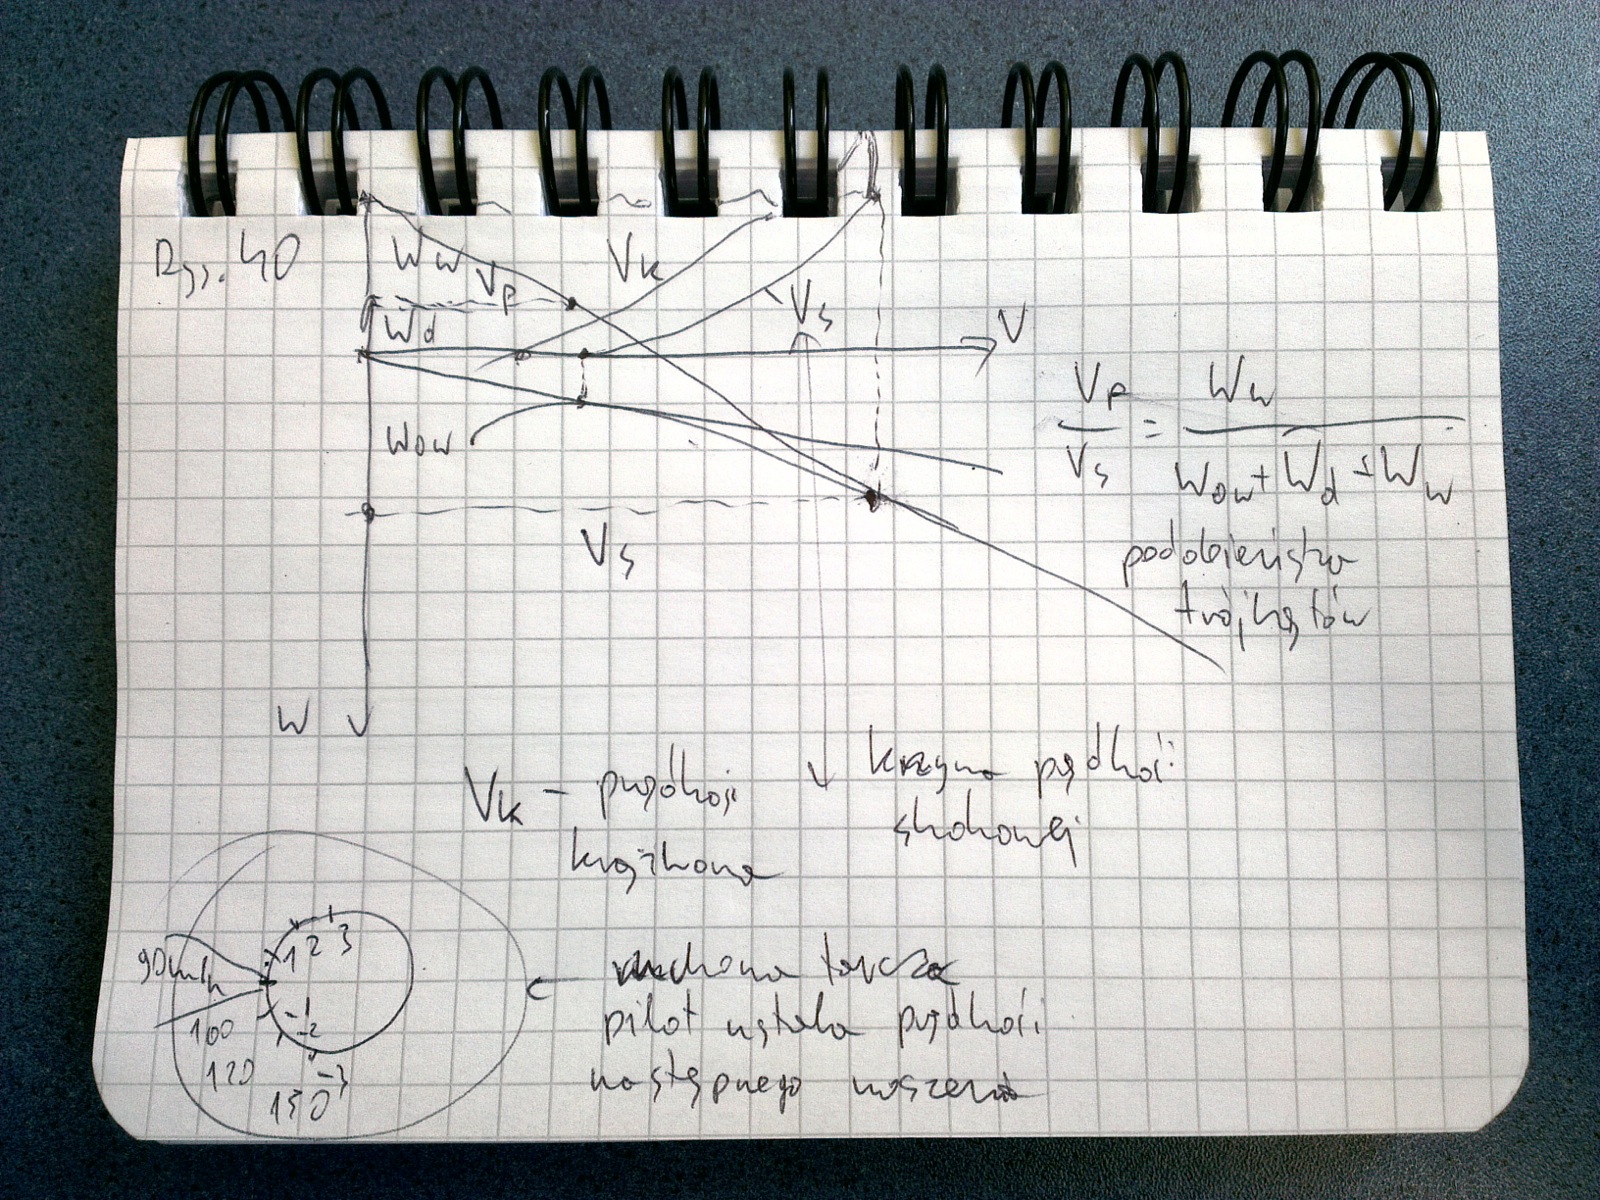 Rys. 40
Ww
Vp
Vk
Wd
Vs
V
Wow
Vs
W
Vp / Vs = Ww / Wow + Wd + Ww
podobieństwo
trójkątów
Vk – prędkość
krążkowa
krzywa prędkości
skokowej
1 2 3
90 km/h
100
120
150
-1
-2
-3
ruchoma tarcza
pilot ustala prędkość
następnego noszenia